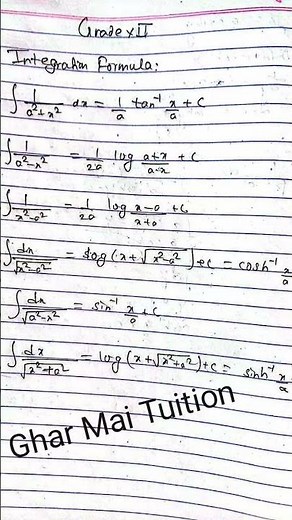 Grade XII
Integration Formula:
∫ 1/(a²+x²) dx = 1/a tan⁻¹ x/a + C
∫ 1/(a²-x²) = 1/2a log (a+x)/(a-x) + C
∫ 1/(x²-a²) = 1/2a log (x-a)/(x+a) + C
∫ dx/√(x²-a²) = log (x+√(x²-a²)) + C = cosh⁻¹ x/a
∫ dx/√(a²-x²) = sin⁻¹ x/a + C
∫ dx/√(x²+a²) = log (x+√(x²+a²)) + C = sinh⁻¹ x/a
Ghar Mai Tuition